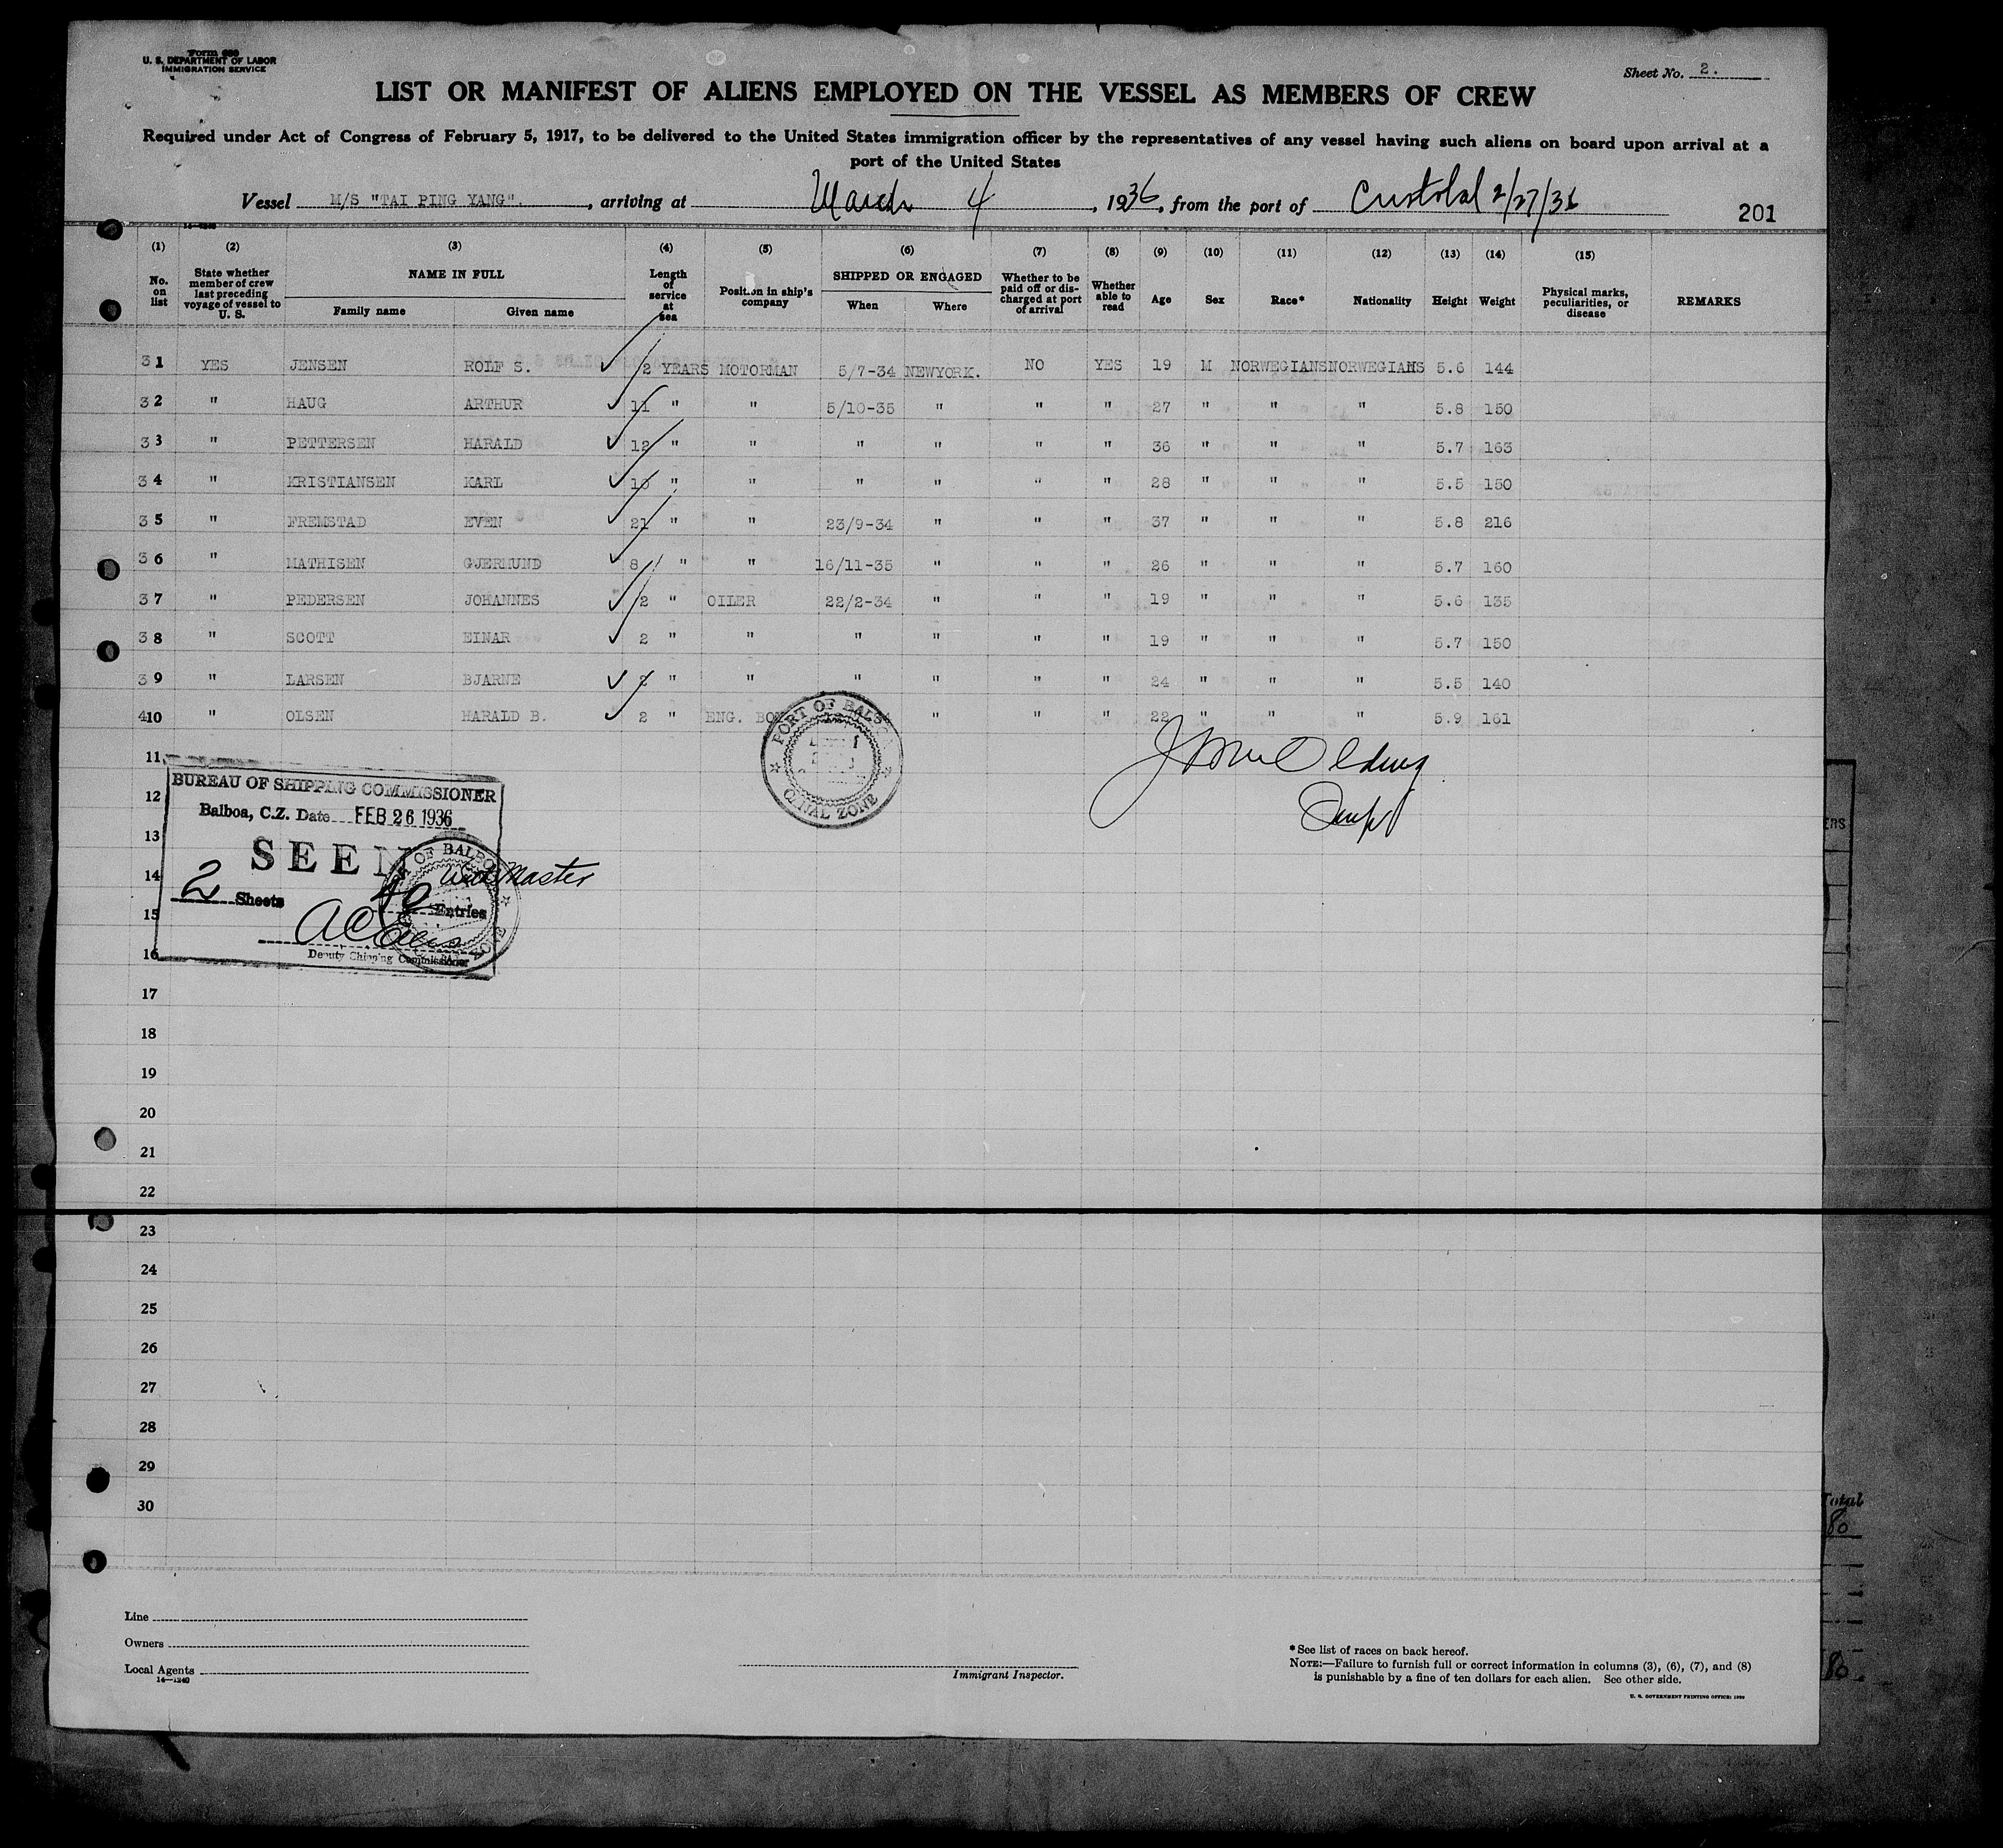 Form 680
U. S. DEPARTMENT OF LABOR
IMMIGRATION SERVICE
Sheet No. 2.
LIST OR MANIFEST OF ALIENS EMPLOYED ON THE VESSEL AS MEMBERS OF CREW
Required under Act of Congress of February 5, 1917, to be delivered to the United States immigration officer by the representatives of any vessel having such aliens on board upon arrival at a
port of the United States
Vessel M/S "TAI PING YANG". , arriving at March 4 , 1936, from the port of Cristobal 2/27/36
201
(1) (2) (3) (4) (5) (6) (7) (8) (9) (10) (11) (12) (13) (14) (15)
No. on list State whether member of crew last preceding voyage of vessel to U. S. NAME IN FULL Family name Given name Length of service at sea Position in ship's company SHIPPED OR ENGAGED When Where Whether to be paid off or discharged at port of arrival Whether able to read Age Sex Race* Nationality Height Weight Physical marks, peculiarities, or disease REMARKS
31 YES JENSEN ROLF S. 2 YEARS MOTORMAN 5/7-34 NEWYORK. NO YES 19 M NORWEGIANS NORWEGIANS 5.6 144
32 " HAUG ARTHUR 11 " " 5/10-35 " " " 27 " " " 5.8 150
33 " PETTERSEN HARALD 12 " " " " " " 36 " " " 5.7 163
34 " KRISTIANSEN KARL 10 " " " " " " 28 " " " 5.5 150
35 " FREMSTAD EVEN 21 " " 23/9-34 " " " 37 " " " 5.8 216
36 " MATHISEN GJERMUND 8 " " 16/11-35 " " " 26 " " " 5.7 160
37 " PEDERSEN JOHANNES 2 " OILER 22/2-34 " " " 19 " " " 5.6 135
38 " SCOTT EINAR 2 " " " " " " 19 " " " 5.7 150
39 " LARSEN BJARNE 2 " " " " " " 24 " " " 5.5 140
410 " OLSEN HARALD B. 2 " ENG. BOY " " " 22 " " " 5.9 161
PORT OF BALBOA
CANAL ZONE
11
12
13
14
15
16
BUREAU OF SHIPPING COMMISSIONER
Balboa, C.Z. Date FEB 26 1936
SEEN
2 Sheets 40 Entries
Master
Deputy Shipping Commissioner
17
18
19
20
21
22
23
24
25
26
27
28
29
30
Total
80
80
Line
Owners
Local Agents
14—1240
Immigrant Inspector.
*See list of races on back hereof.
NOTE:—Failure to furnish full or correct information in columns (3), (6), (7), and (8)
is punishable by a fine of ten dollars for each alien. See other side.
U. S. GOVERNMENT PRINTING OFFICE: 1930